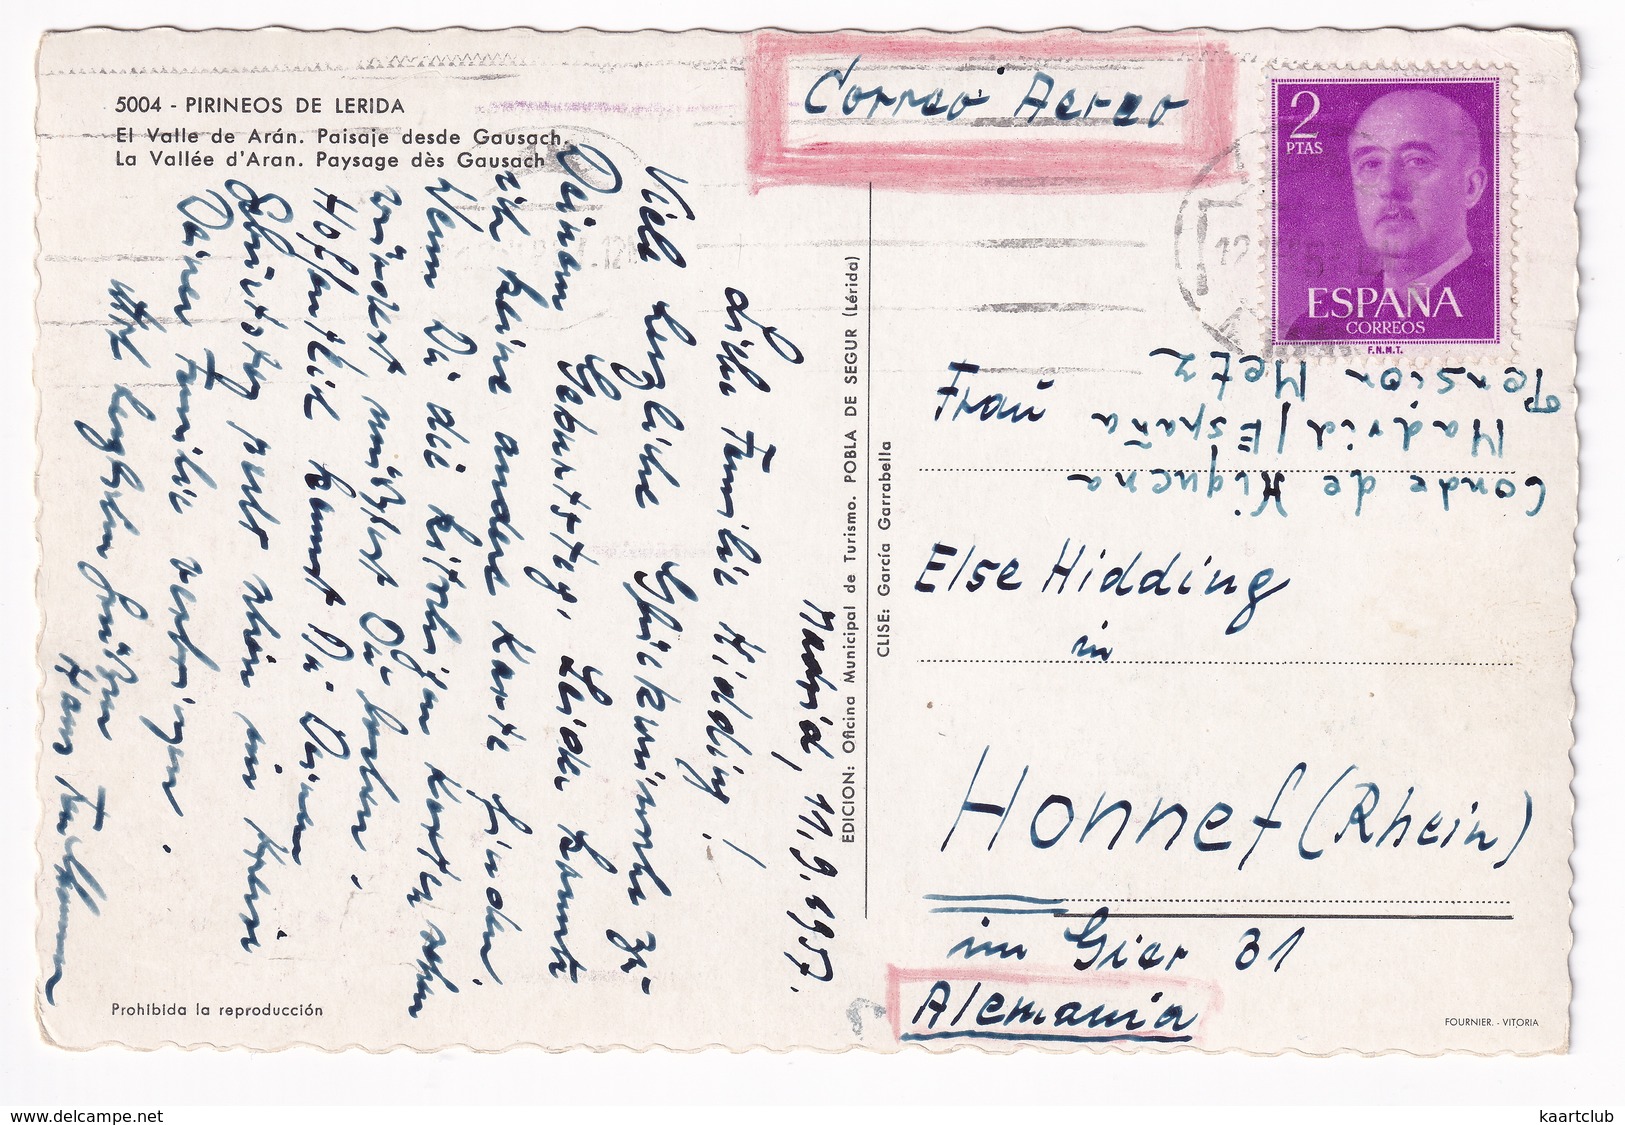 5004 - PIRINEOS DE LERIDA
El Valle de Arán. Paisaje desde Gausach.
La Vallée d'Aran. Paysage dès Gausach
Correo Aereo
2
PTAS
ESPAÑA
CORREOS
F.N.M.T.
Madrid, 11.9.1957.
Liebe Familie Hidding!
Viele herzliche Glückwünsche zu
Deinem Geburtstag. Leider konnte
ich keine andere Karte finden.
Wenn Du die hiesigen Karten sehen
würdest müßtest Du lachen.
Hoffentlich kannst Du Deinen
Geburtstag recht schön im Kreise
Deiner Familie verbringen.
herzlichen Grüßen
Hans
EDICION: Oficina Municipal de Turismo. POBLA DE SEGUR (Lérida)
CLISE: García Garrabella
Pension Metz
Madrid / España
Conde de Xiquena
Frau
Else Hidding
in
Honnef (Rhein)
im Gier 31
Alemania
Prohibida la reproducción
FOURNIER. - VITORIA
www.delcampe.net
kaartclub